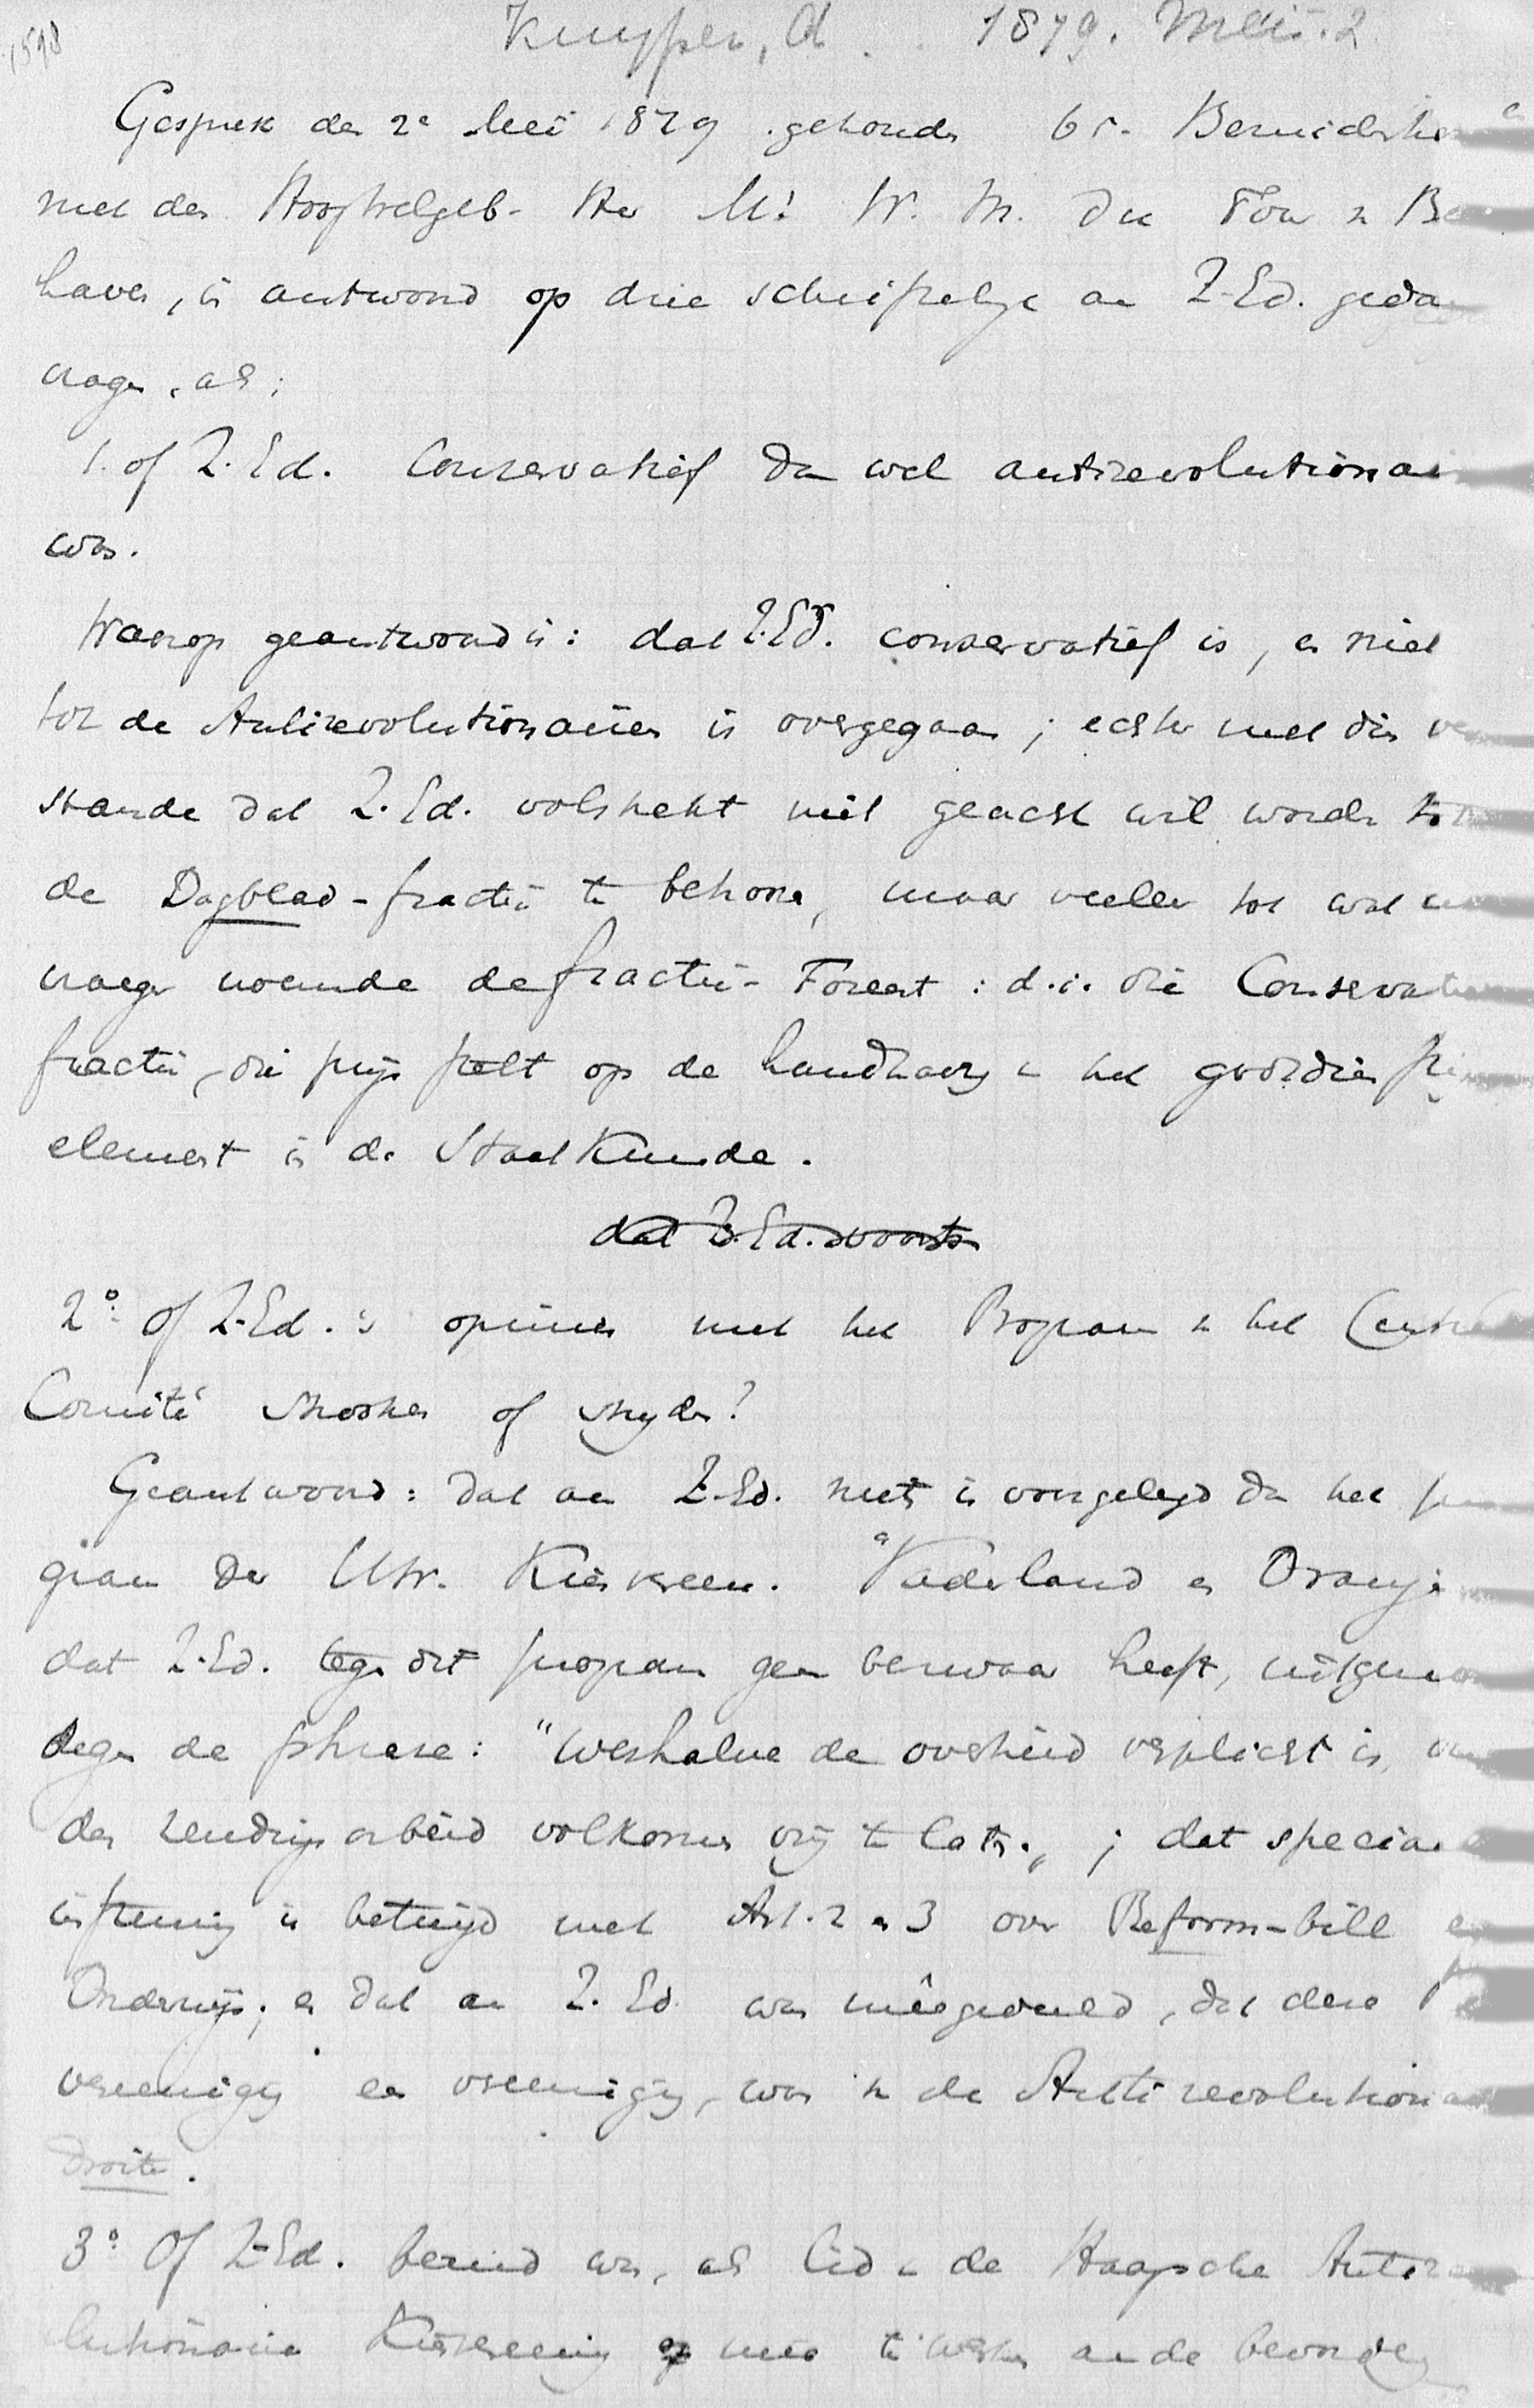 1598
Kuyper, A. 1879. Mei. 2
Gesprek den 2e Mei 1879 gehouden 65.
met den Hoogwelgeb. Heer Mr W. M. du Tour v. Be
have, in antwoord op drie schriftelijke aan Z.Ed. geda
vragen, als:
1. of Z.Ed. Conservatief dan wel antirevolutionai
was.
Waarop geantwoord is: dat Z.Ed. conservatief is, en niet
tot de Antirevolutionairen is overgegaan; echter met dien ver
stande dat Z.Ed. volstrekt niet geacht wil worden tot
de Dagblad-fractie te behoren, maar veeleer tot wat
vroeger noemde de fractie-Foreest: d.i. die Conservatieve
fractie, die prijs stelt op de handhaving v. het godsdienstig
element in de Staatkunde.
dat Z.Ed. voorts
2o: Of Z.Ed.'s opinien met het Program v. het Centraal
Comité strooken of strijden?
Geantwoord: dat aan Z.Ed. niets is voorgelegd dan het pro
gram der Utr. Kiesvereen. "Vaderland en Oranje
dat Z.Ed. tegen dit program geen bezwaar heeft, uitgenomen
tegen de phrase: "weshalve de overheid verplicht is, om
den zendingsarbeid volkomen vrij te laten"; dat speciale
instemming is betuigd met Art. 2 en 3 over Reform-bill en
Onderwijs; en dat aan Z.Ed. was meêgedeeld, dat deze
vereeniging een vereeniging was v. de Antirevolutionaire
droite.
3o: Of Z.Ed. bereid was, als lid v. de Haagsche Antirevo
lutionaire Kiesvereeniging meê te werken aan de bevordering